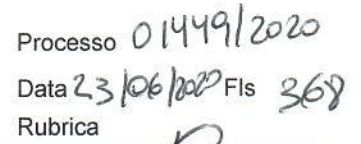 Processo 01449/2020
Data 23/06/2020 Fls 368
Rubrica